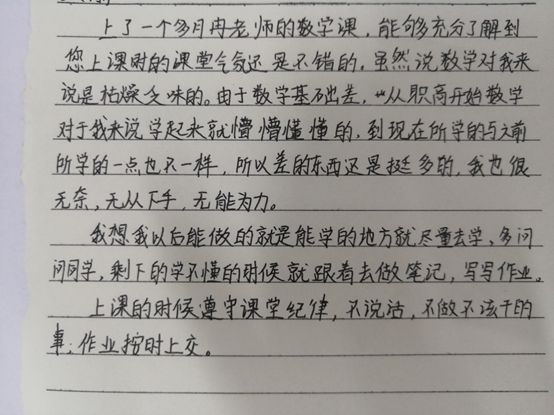 上了一个多月冉老师的数学课，能够充分了解到
您上课时的课堂气氛还是不错的，虽然说数学对我来
说是枯燥乏味的。由于数学基础差，从职高开始数学
对于我来说学起来就懵懵懂懂的，到现在所学的与之前
所学的一点也不一样，所以差的东西还是挺多的，我也很
无奈，无从下手，无能为力。
我想我以后能做的就是能学的地方就尽量去学，多问
问同学，剩下的学不懂的时候就跟着去做笔记，写写作业。
上课的时候遵守课堂纪律，不说话，不做不该干的
事，作业按时上交。